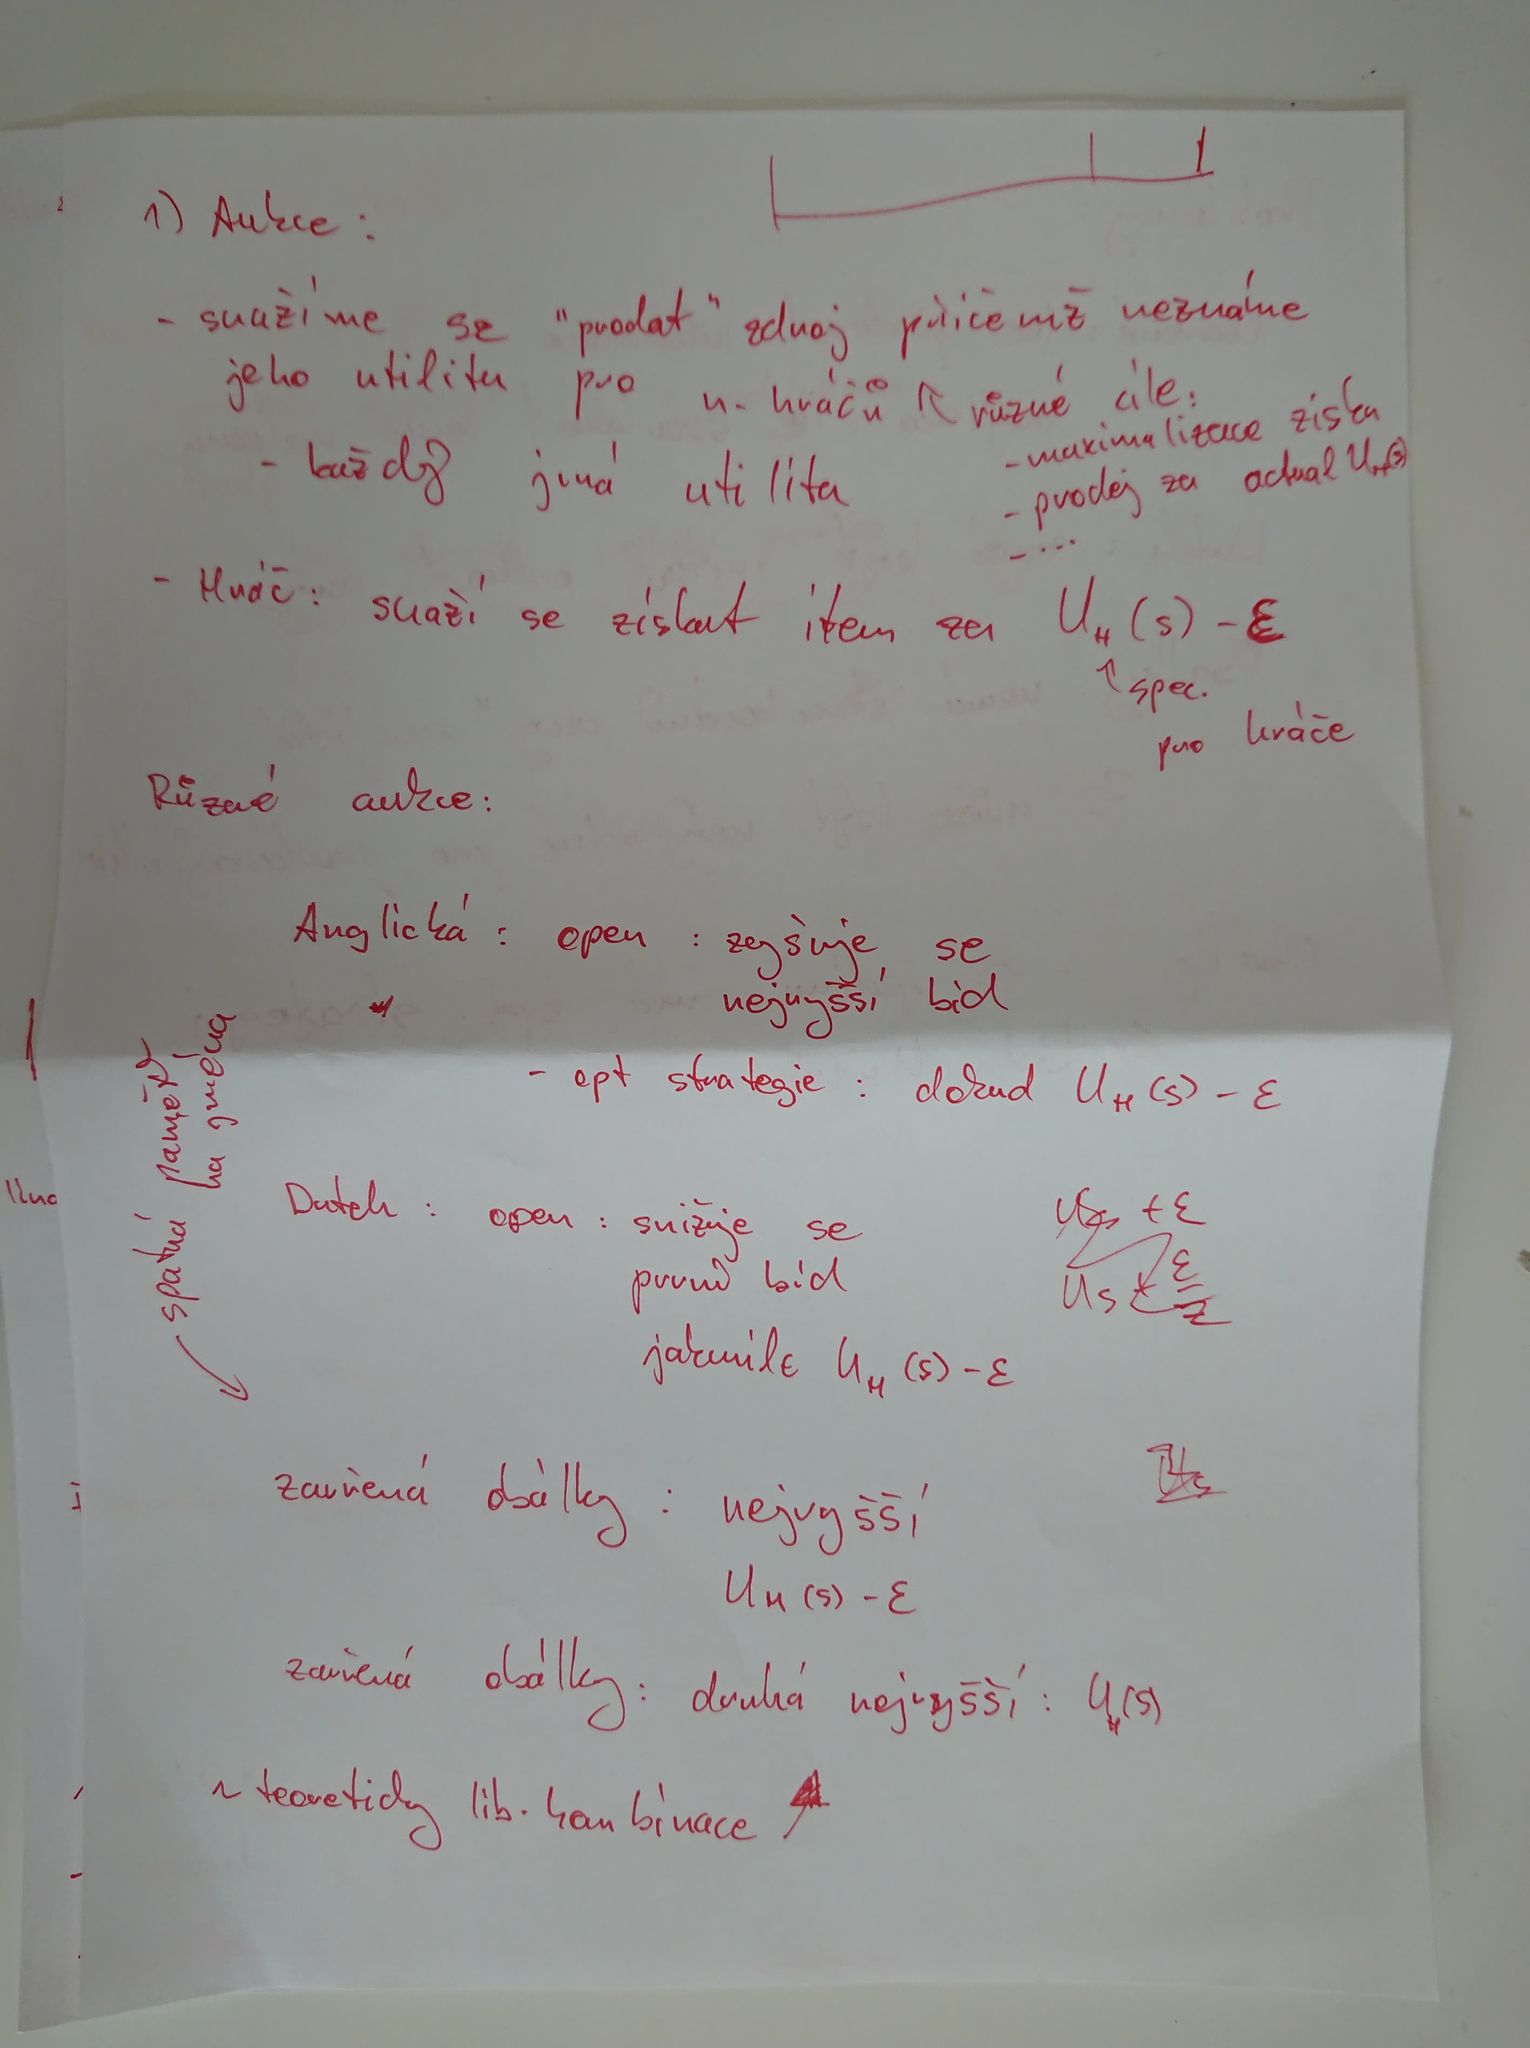 1) Aukce:
- snažíme se "prodat" zdroj přičemž neznáme
jeho utilitu pro n-hráčů ↖ různé cíle:
- maximalizace zisku
- každý jiná utilita
- prodej za actual U_H(s)
- ...
- Hráč: snaží se získat item za U_H(s) - ε
↑ spec.
pro hráče
Různé aukce:
Anglická: open: zvyšuje se
nejvyšší bid
- opt strategie: dokud U_H(s) - ε
špatná paměť
na jména
Dutch: open: snižuje se
první bid
jakmile U_H(s) - ε
zavřená obálky: nejvyšší
U_H(s) - ε
zavřená obálky: druhá nejvyšší: U_H(s)
~ teoreticky lib. kombinace